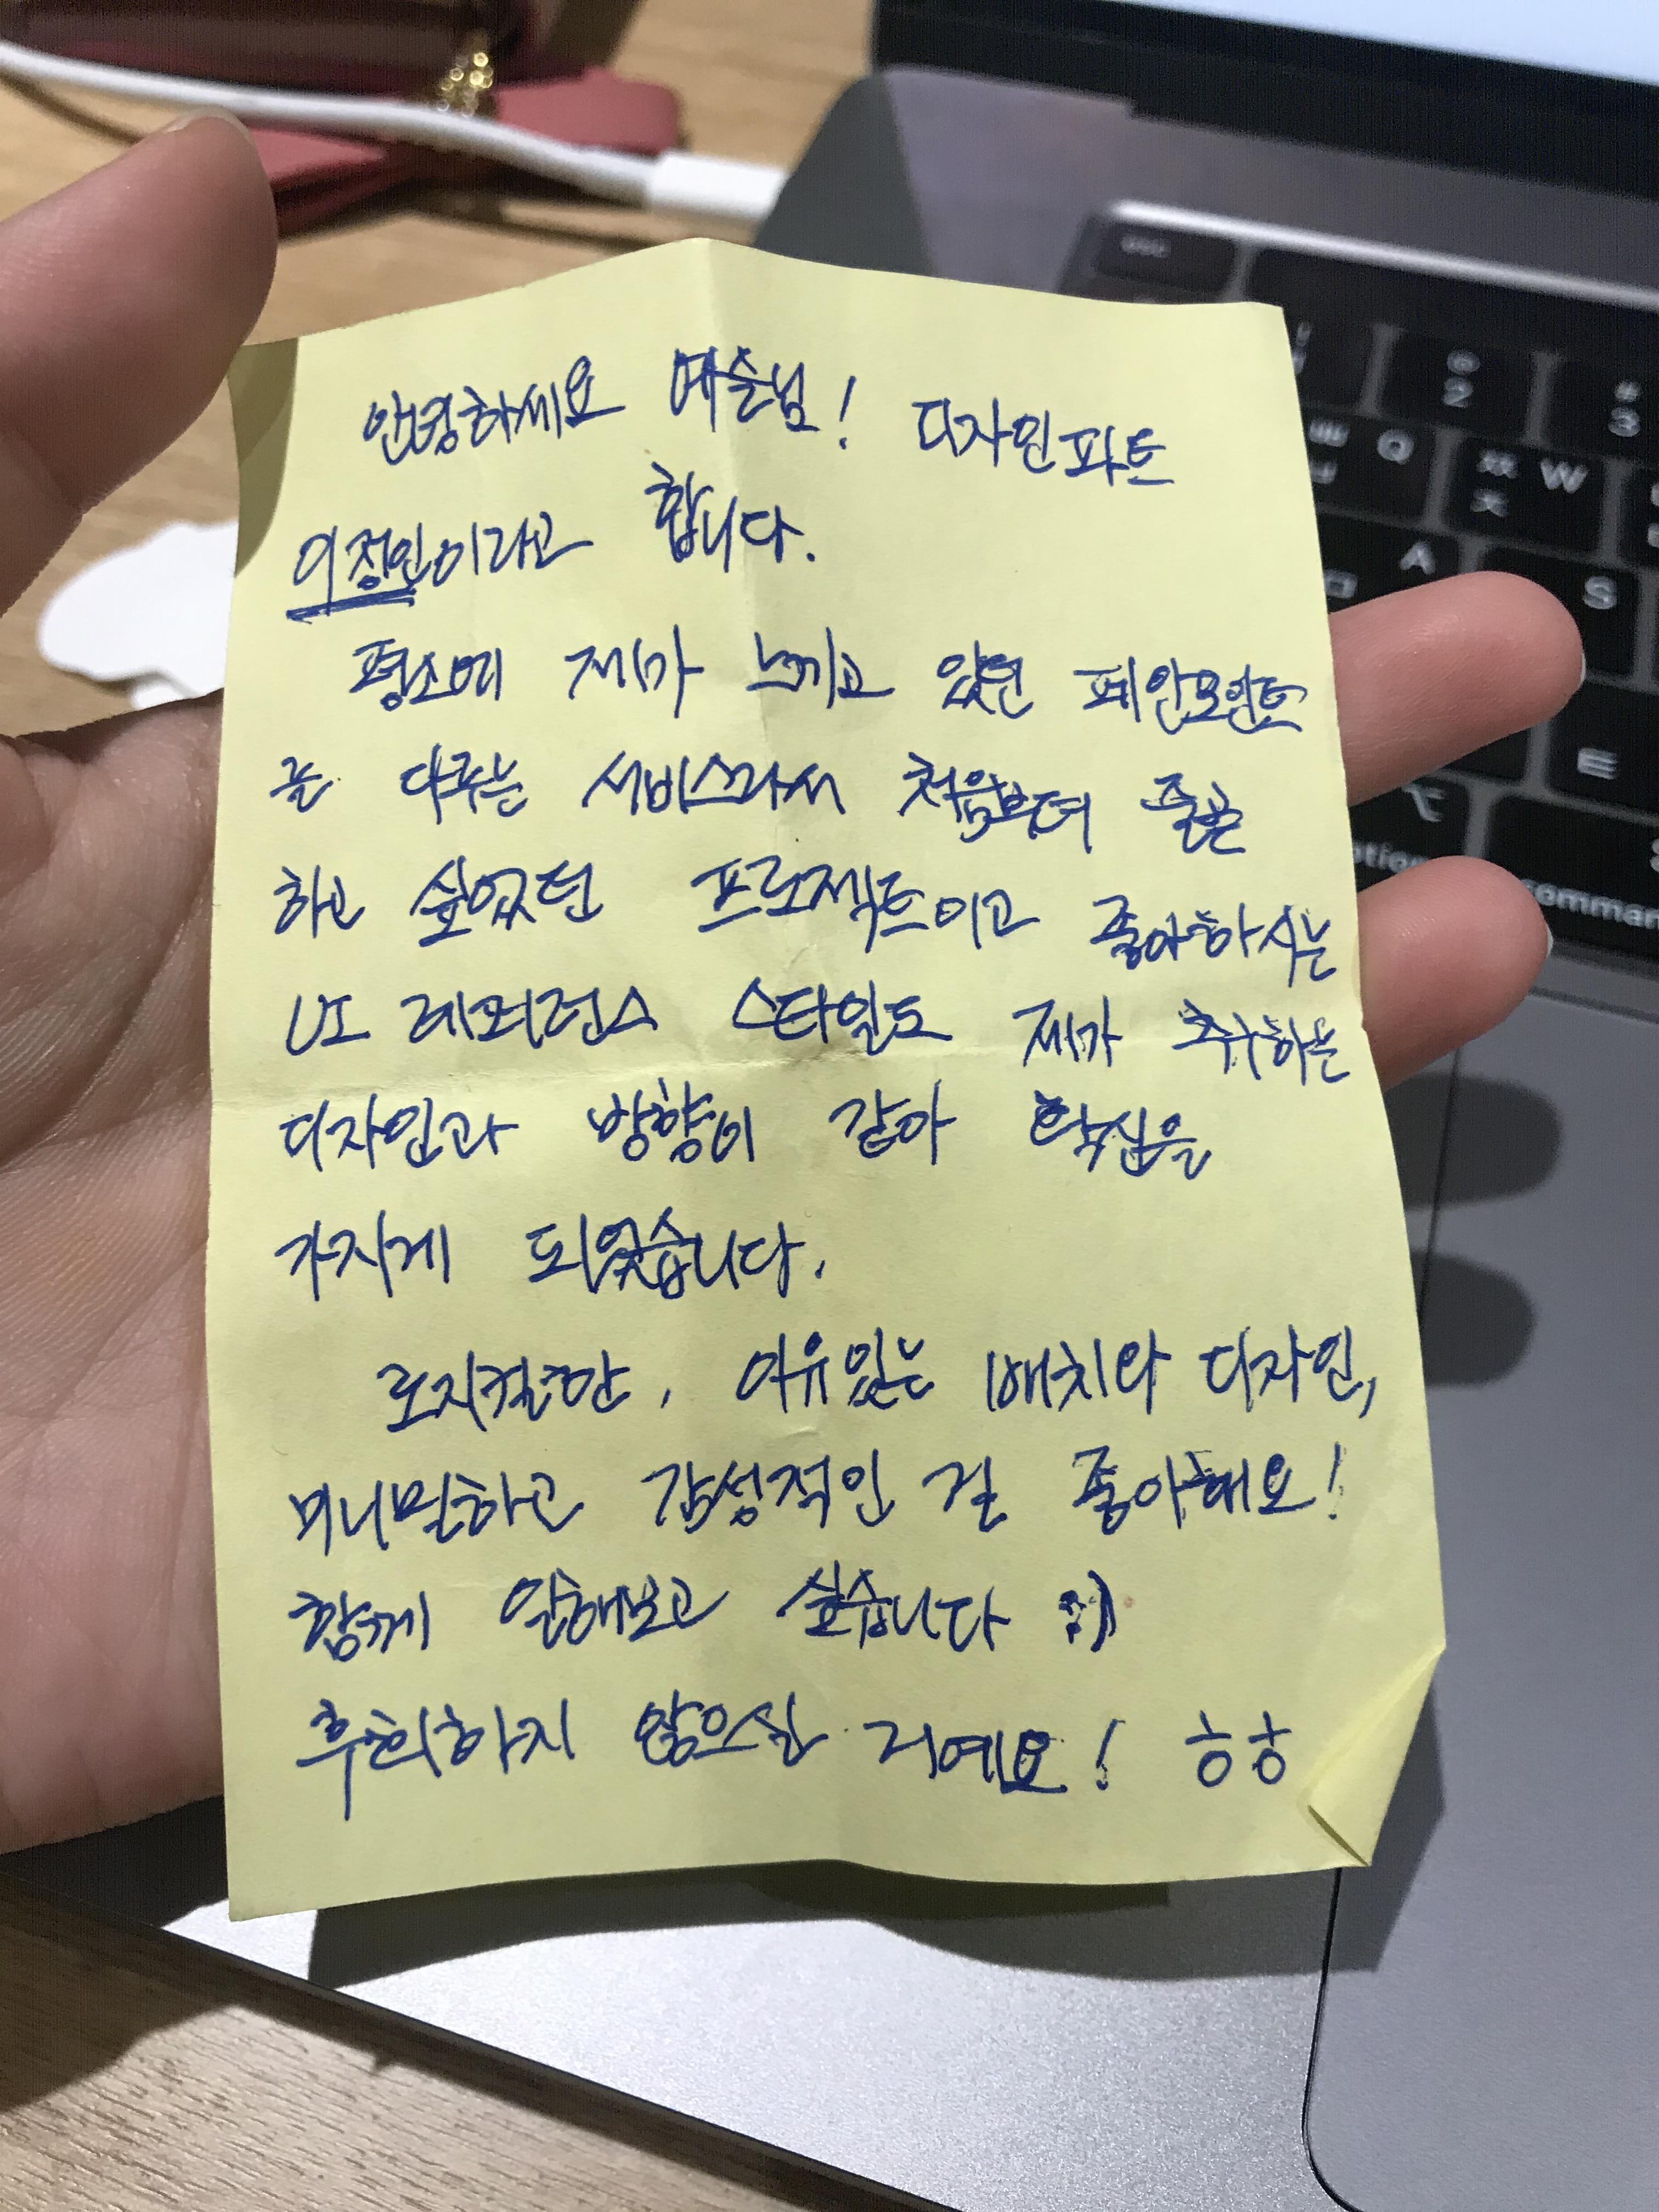 안녕하세요 예슬님! 디자인파트
이정인이라고 합니다.
평소에 제가 느끼고 있던 페인포인트
를 다루는 서비스라서 처음부터 줄곧
하고 싶었던 프로젝트이고 좋아하시는
UI 레퍼런스 스타일도 제가 추구하는
디자인과 방향이 같아 확신을
가지게 되었습니다.
로지컬한, 여유있는 배치와 디자인,
미니멀하고 감성적인 걸 좋아해요!
함께 일해보고 싶습니다 :)
후회하지 않으실 거예요! ㅎㅎ
esc
! 1
@ 2
# 3
ㅃ Q ㅂ
ㅉ W ㅈ
A ㅁ
S
ㅌ
⌥
option
command